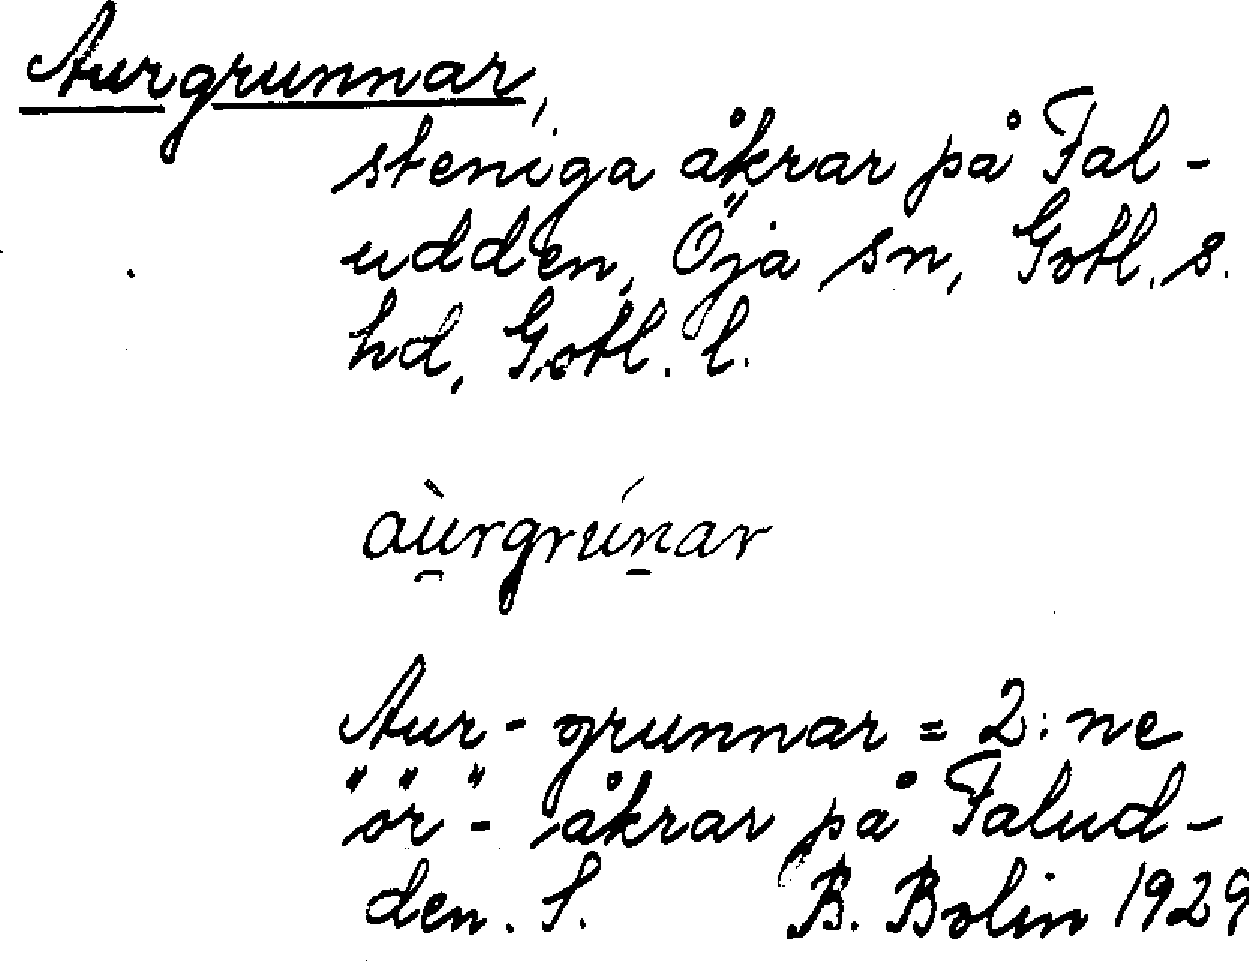 Aurgrunnar,
steniga åkrar på Fal-
udden, Öja sn, Gotl. s.
hd, Gotl. l.
aù̯rgrún̠ar
Aur-grunnar = 2:ne
"ör"-åkrar på Falud-
den. S. B. Bolin 1929